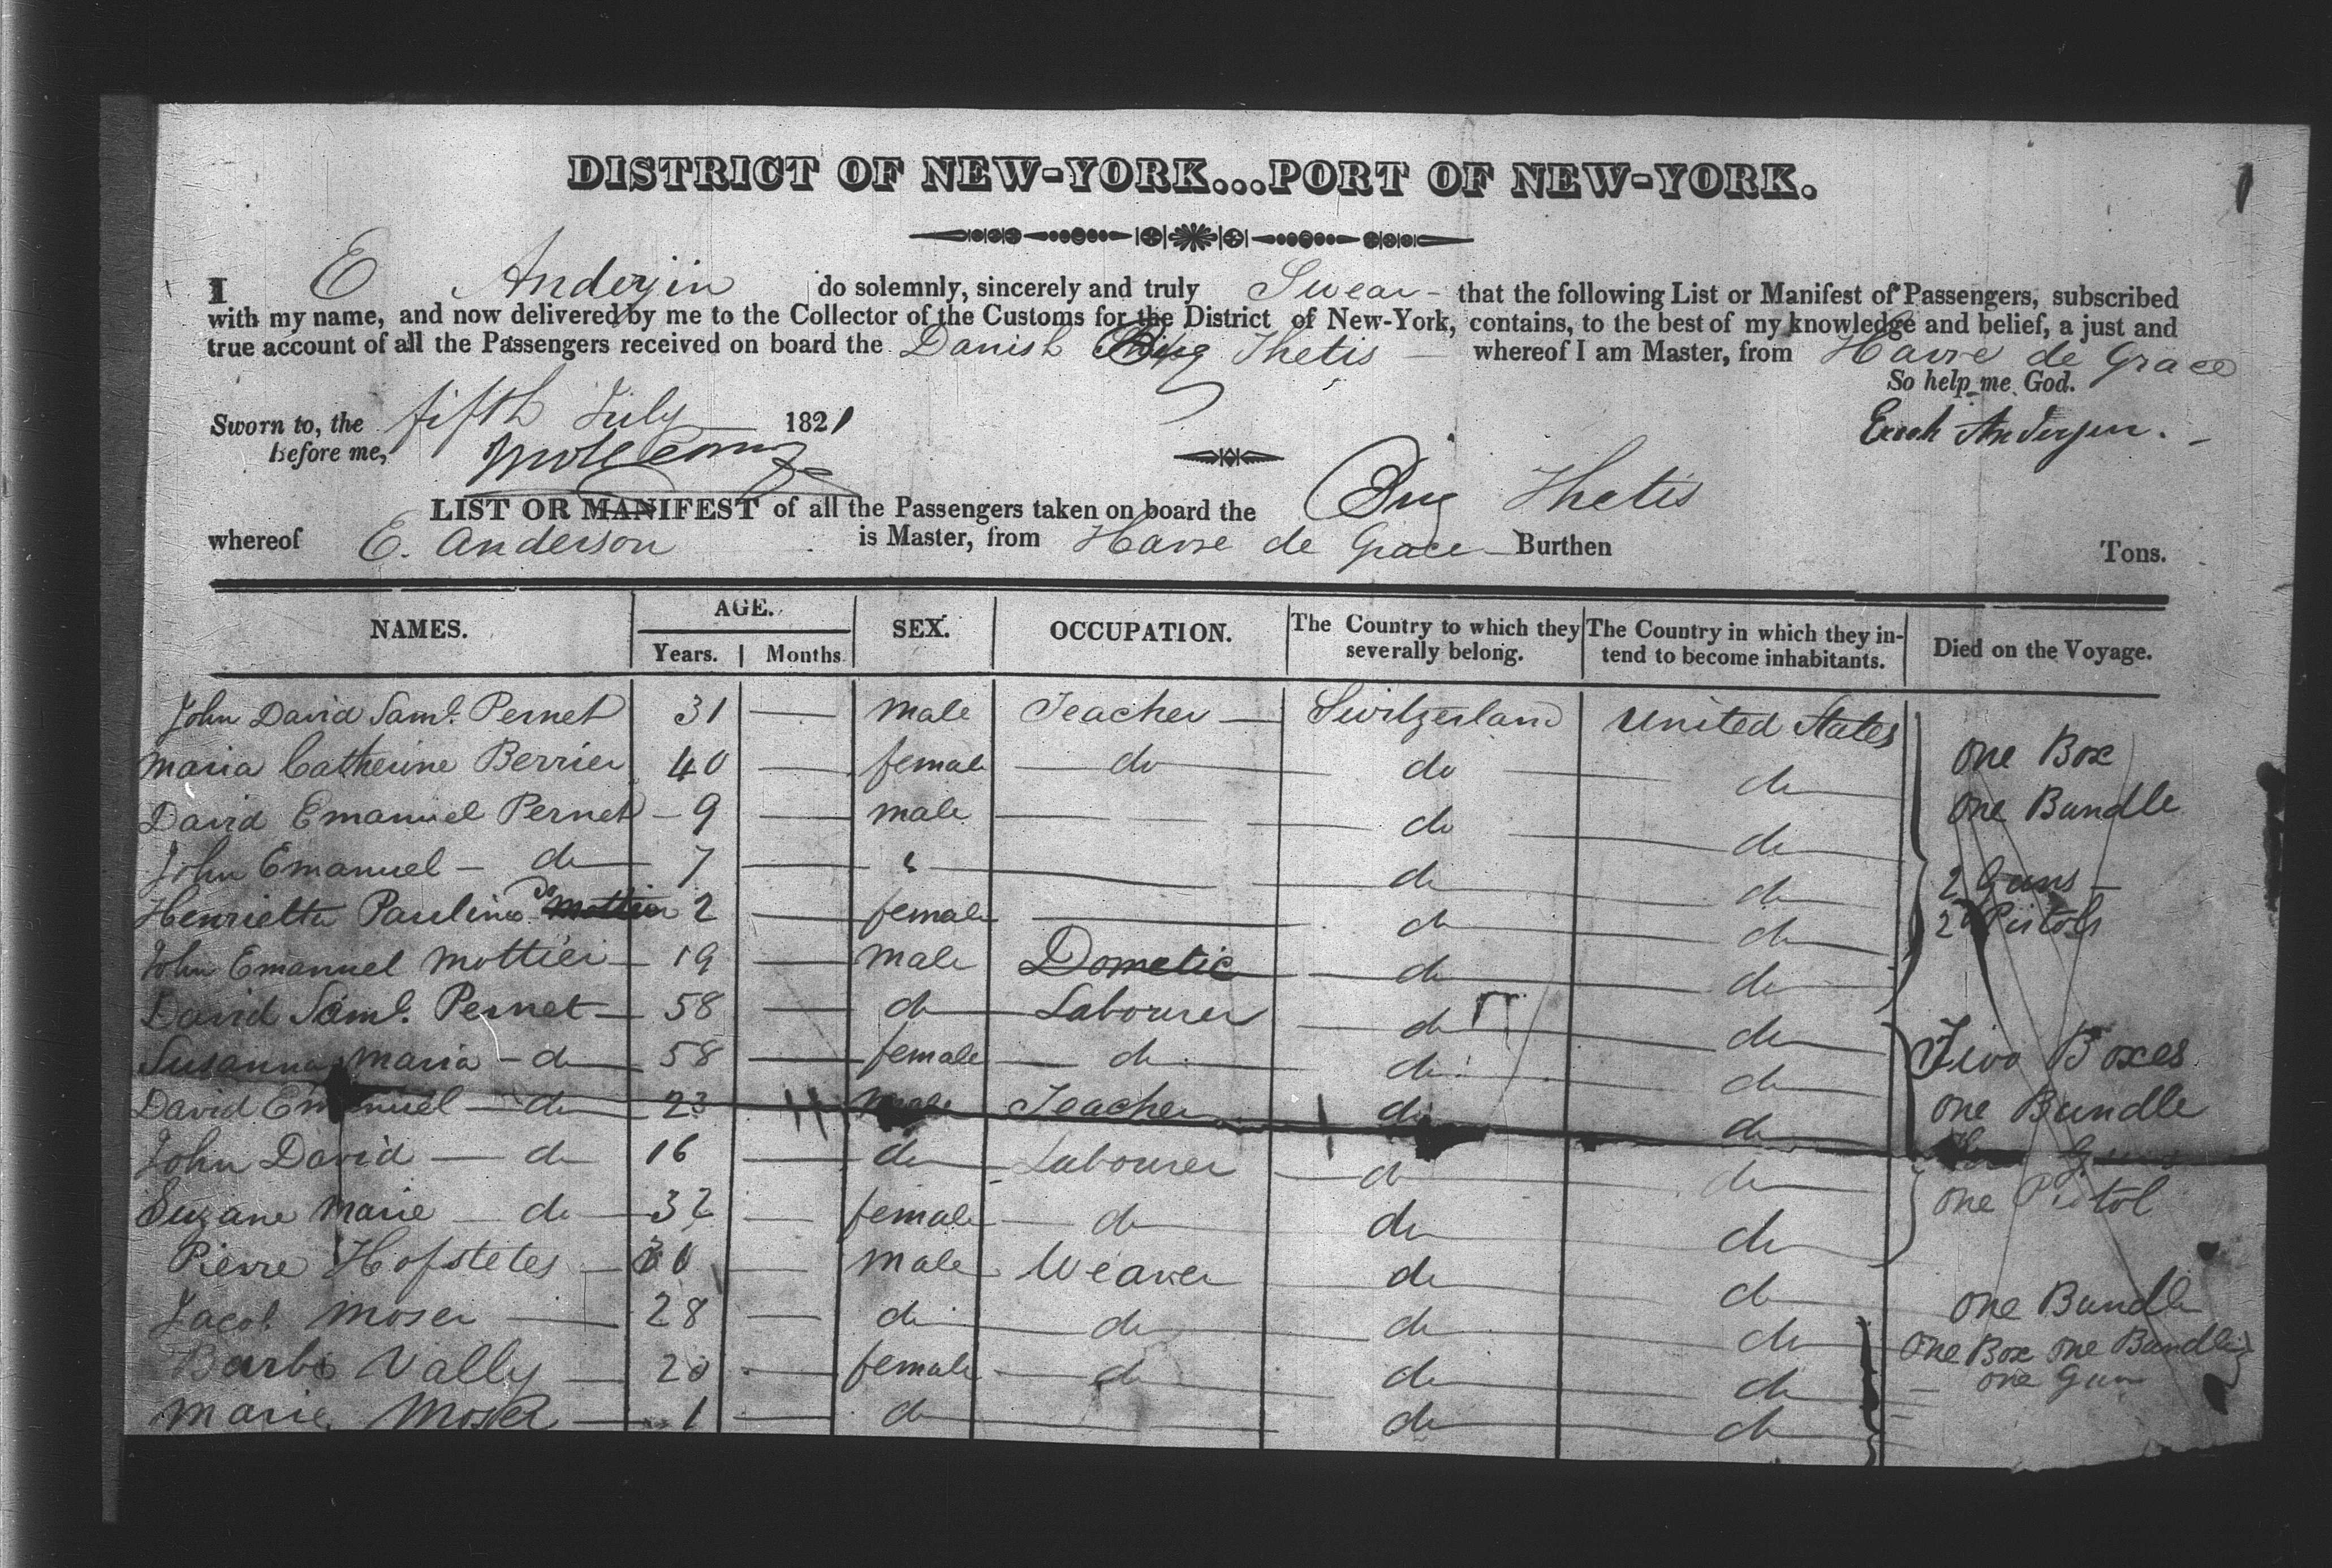 DISTRICT OF NEW-YORK...PORT OF NEW-YORK.
I E Anderjin do solemnly, sincerely and truly Swear - that the following List or Manifest of Passengers, subscribed
with my name, and now delivered by me to the Collector of the Customs for the District of New-York, contains, to the best of my knowledge and belief, a just and
true account of all the Passengers received on board the Danish Brig Thetis - whereof I am Master, from Havre de Grace
So help me God.
Sworn to, the fifth July 1821
before me,
Andersen.
LIST OR MANIFEST of all the Passengers taken on board the Brig Thetis
whereof E. Anderson is Master, from Havre de Grace Burthen Tons.
NAMES. AGE. SEX. OCCUPATION. The Country to which they severally belong. The Country in which they intend to become inhabitants. Died on the Voyage.
Years. Months.
John David Saml. Pernet 31 — male Teacher — Switzerland United States
Maria Catherine Berrier 40 — female — do — do — do — One Box
David Emanuel Pernet - 9 — male — do — do — One Bundle
John Emanuel - do — 7 — " — do — do — 2 Guns —
Henriette Pauline do 2 — female — do — do — 2 Pistols
John Emanuel Mottier — 19 — male Dometic — do — do —
David Saml. Pernet — 58 — do — Labourer — do — do —
Susanna Maria - do — 58 — female — do — do — do — Two Boxes
David Emanuel — do — 23 male Teacher — do — do — One Bundle
John David — do 16 — do — Labourer — do — do —
Suzane Marie — do — 32 — female — do — do — do — One Pistol
Pierre Hofstetes — — male Weaver — do — do — One Bundle
Jacob Moser — 28 — do — do — do — do — One Box One Bundle
Barbe Vally — 20 — female — do — do — do — One Gun
Marie Moser — 1 — do — do — do